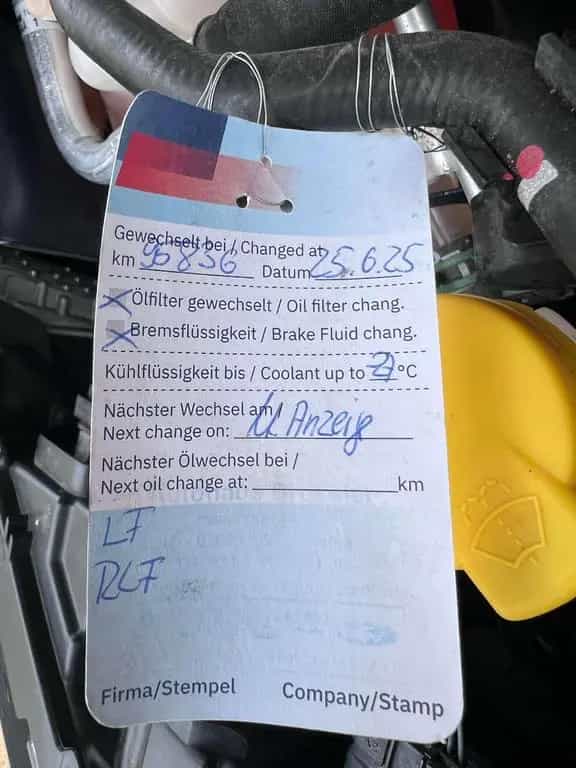 Gewechselt bei / Changed at
km 95 836 Datum 25.6.25
Ölfilter gewechselt / Oil filter chang.
Bremsflüssigkeit / Brake Fluid chang.
Kühlflüssigkeit bis / Coolant up to °C
Nächster Wechsel am /
Next change on: Anzeige
Nächster Ölwechsel bei /
Next oil change at: km
LF
RLF
Firma/Stempel Company/Stamp